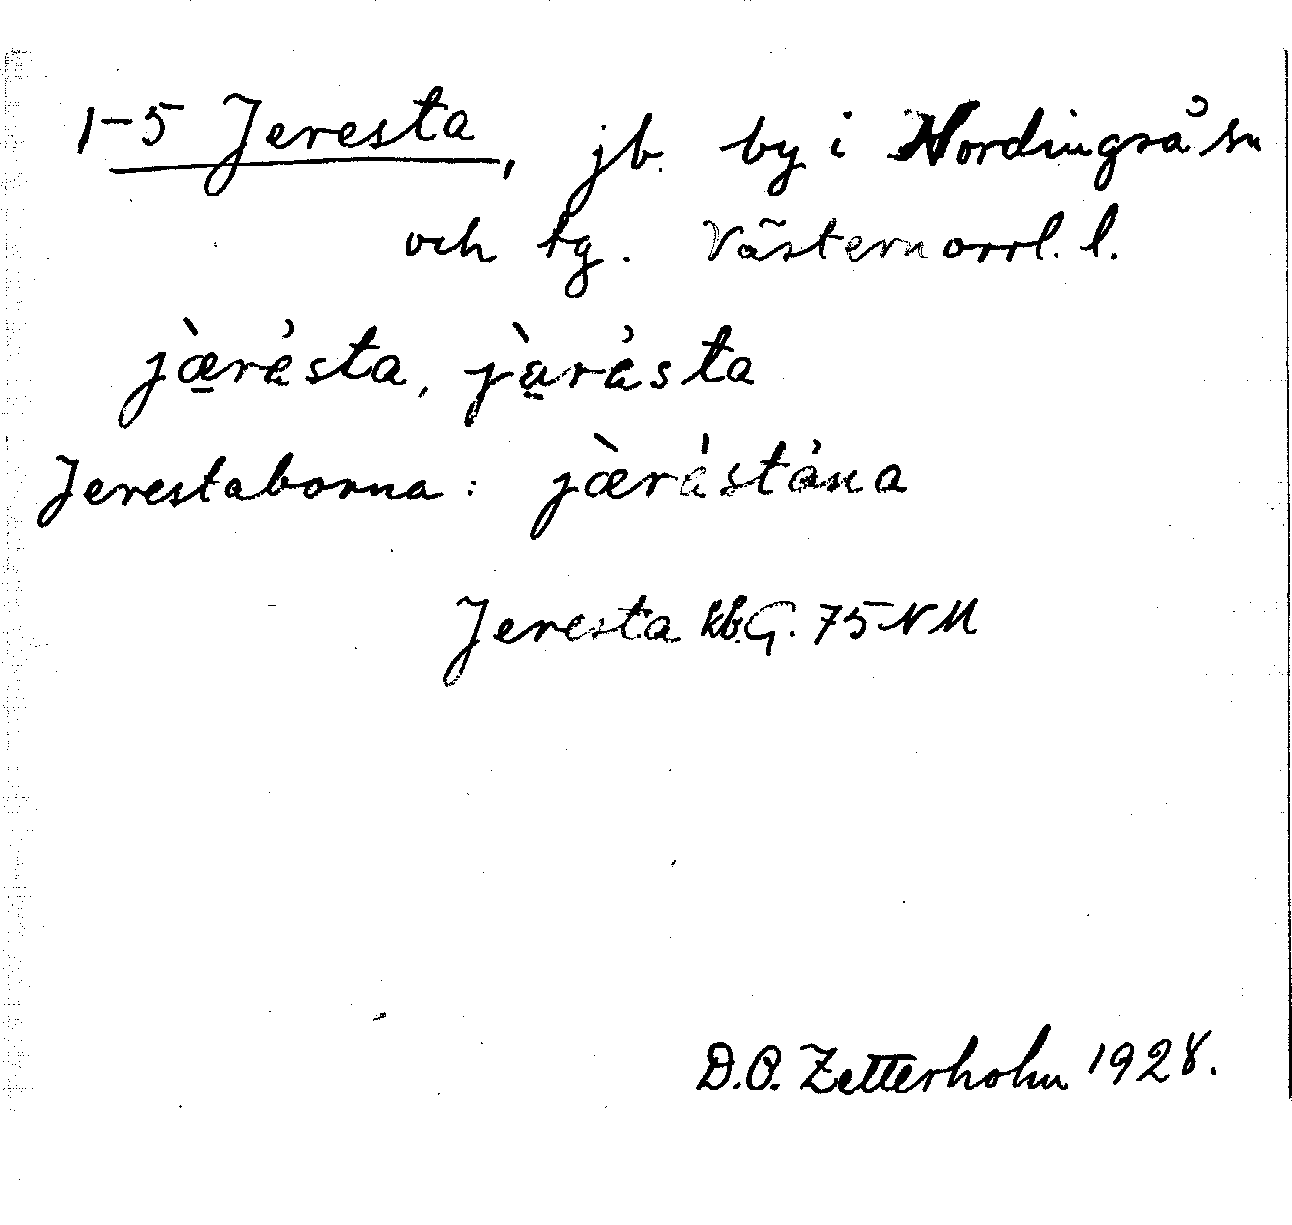 1-5 Jeresta, jb. by i Nordingrå sn
och tg. Västernorrl. l.
jæ̠̀résta, jàrésta
Jerestaborna: jæ̀réstána
Jeresta kb. G. 75 NM
D.O. Zetterholm 1928.